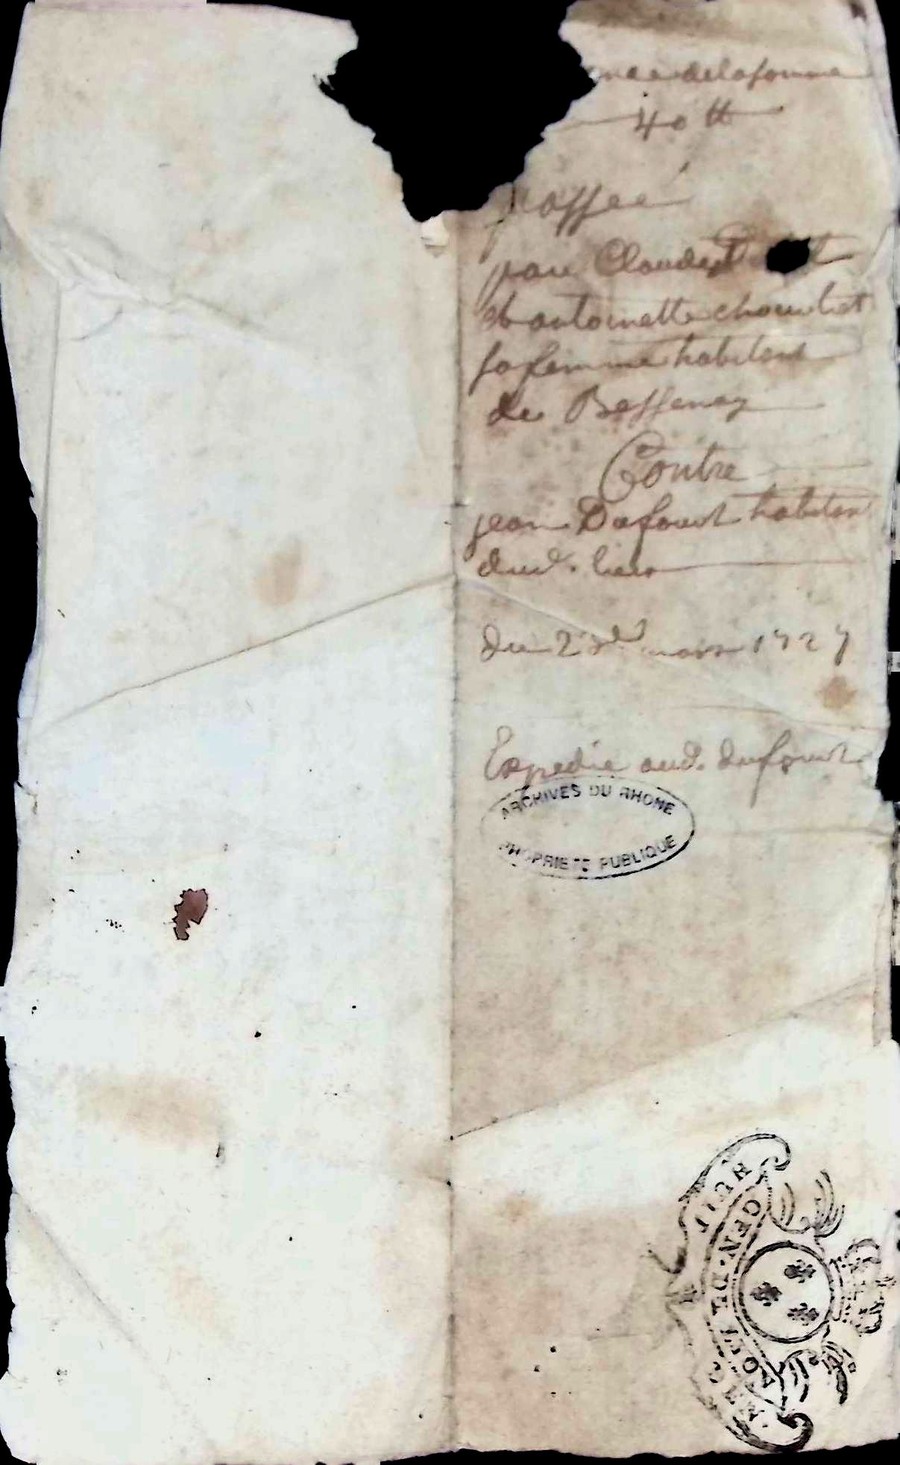 de la somme
40 tt
passée
par Claude
et antoinette
sa femme habitans
de Bessenay
Contre
jean Dufourt habitant
dud. lieu
du mars 1727
Expedié aud. dufourt
ARCHIVES DU RHONE
PROPRIETE PUBLIQUE
HUIT
GEN. DE LYON